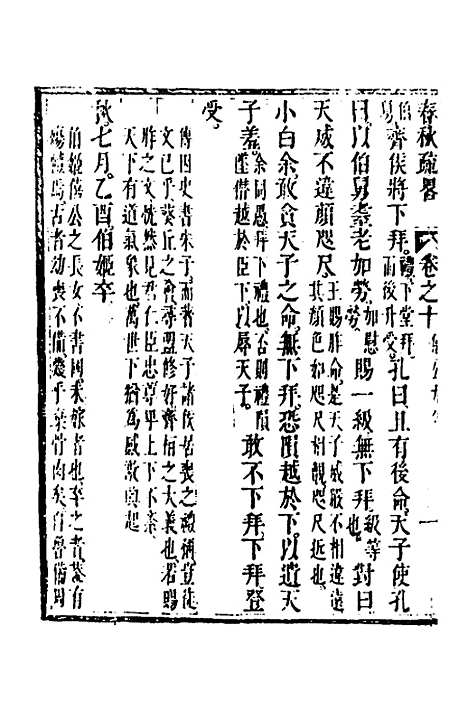 春秋疏畧 卷之十
伯舅齊侯將下拜禮下堂拜而後升受孔曰且有後命天子使孔
曰以伯舅耋老加勞加慰勞賜一級無下拜級等也對曰
天威不違顏咫尺王賜胙命是天子威嚴不相違遠其顏色如咫尺相覿咫尺近也
小白余敢貪天子之命無下拜恐隕越於下以遺天
子羞余同愚拜下禮也否則禮廢僭越於臣下以辱天子敢不下拜下拜登
受
傳因史書朱子而著天子諸侯吉喪之禮稱豈徒
文已乎葵丘之會尋盟修好齊桓之大義也若賜
胙之文恍然見君仁臣忠尊卑上下不紊
天下有道氣象也萬世下猶為感激興起
秋七月乙酉伯姬卒
伯姬僖公之長女不書國未嫁者也卒之者蓋有
殤禮焉古者幼喪不備
乎棄骨肉矣
魯備周